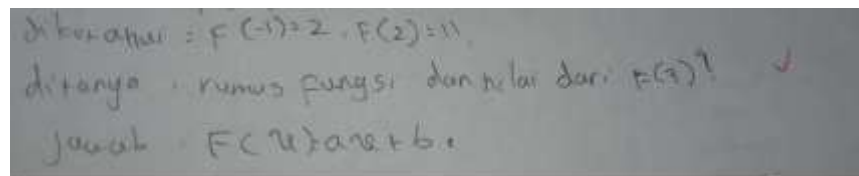 diketahui : F(-1)=2 . F(2)=11
ditanya . rumus fungsi dan nilai dari F(7)?
jawab . F(x)=ax+b.